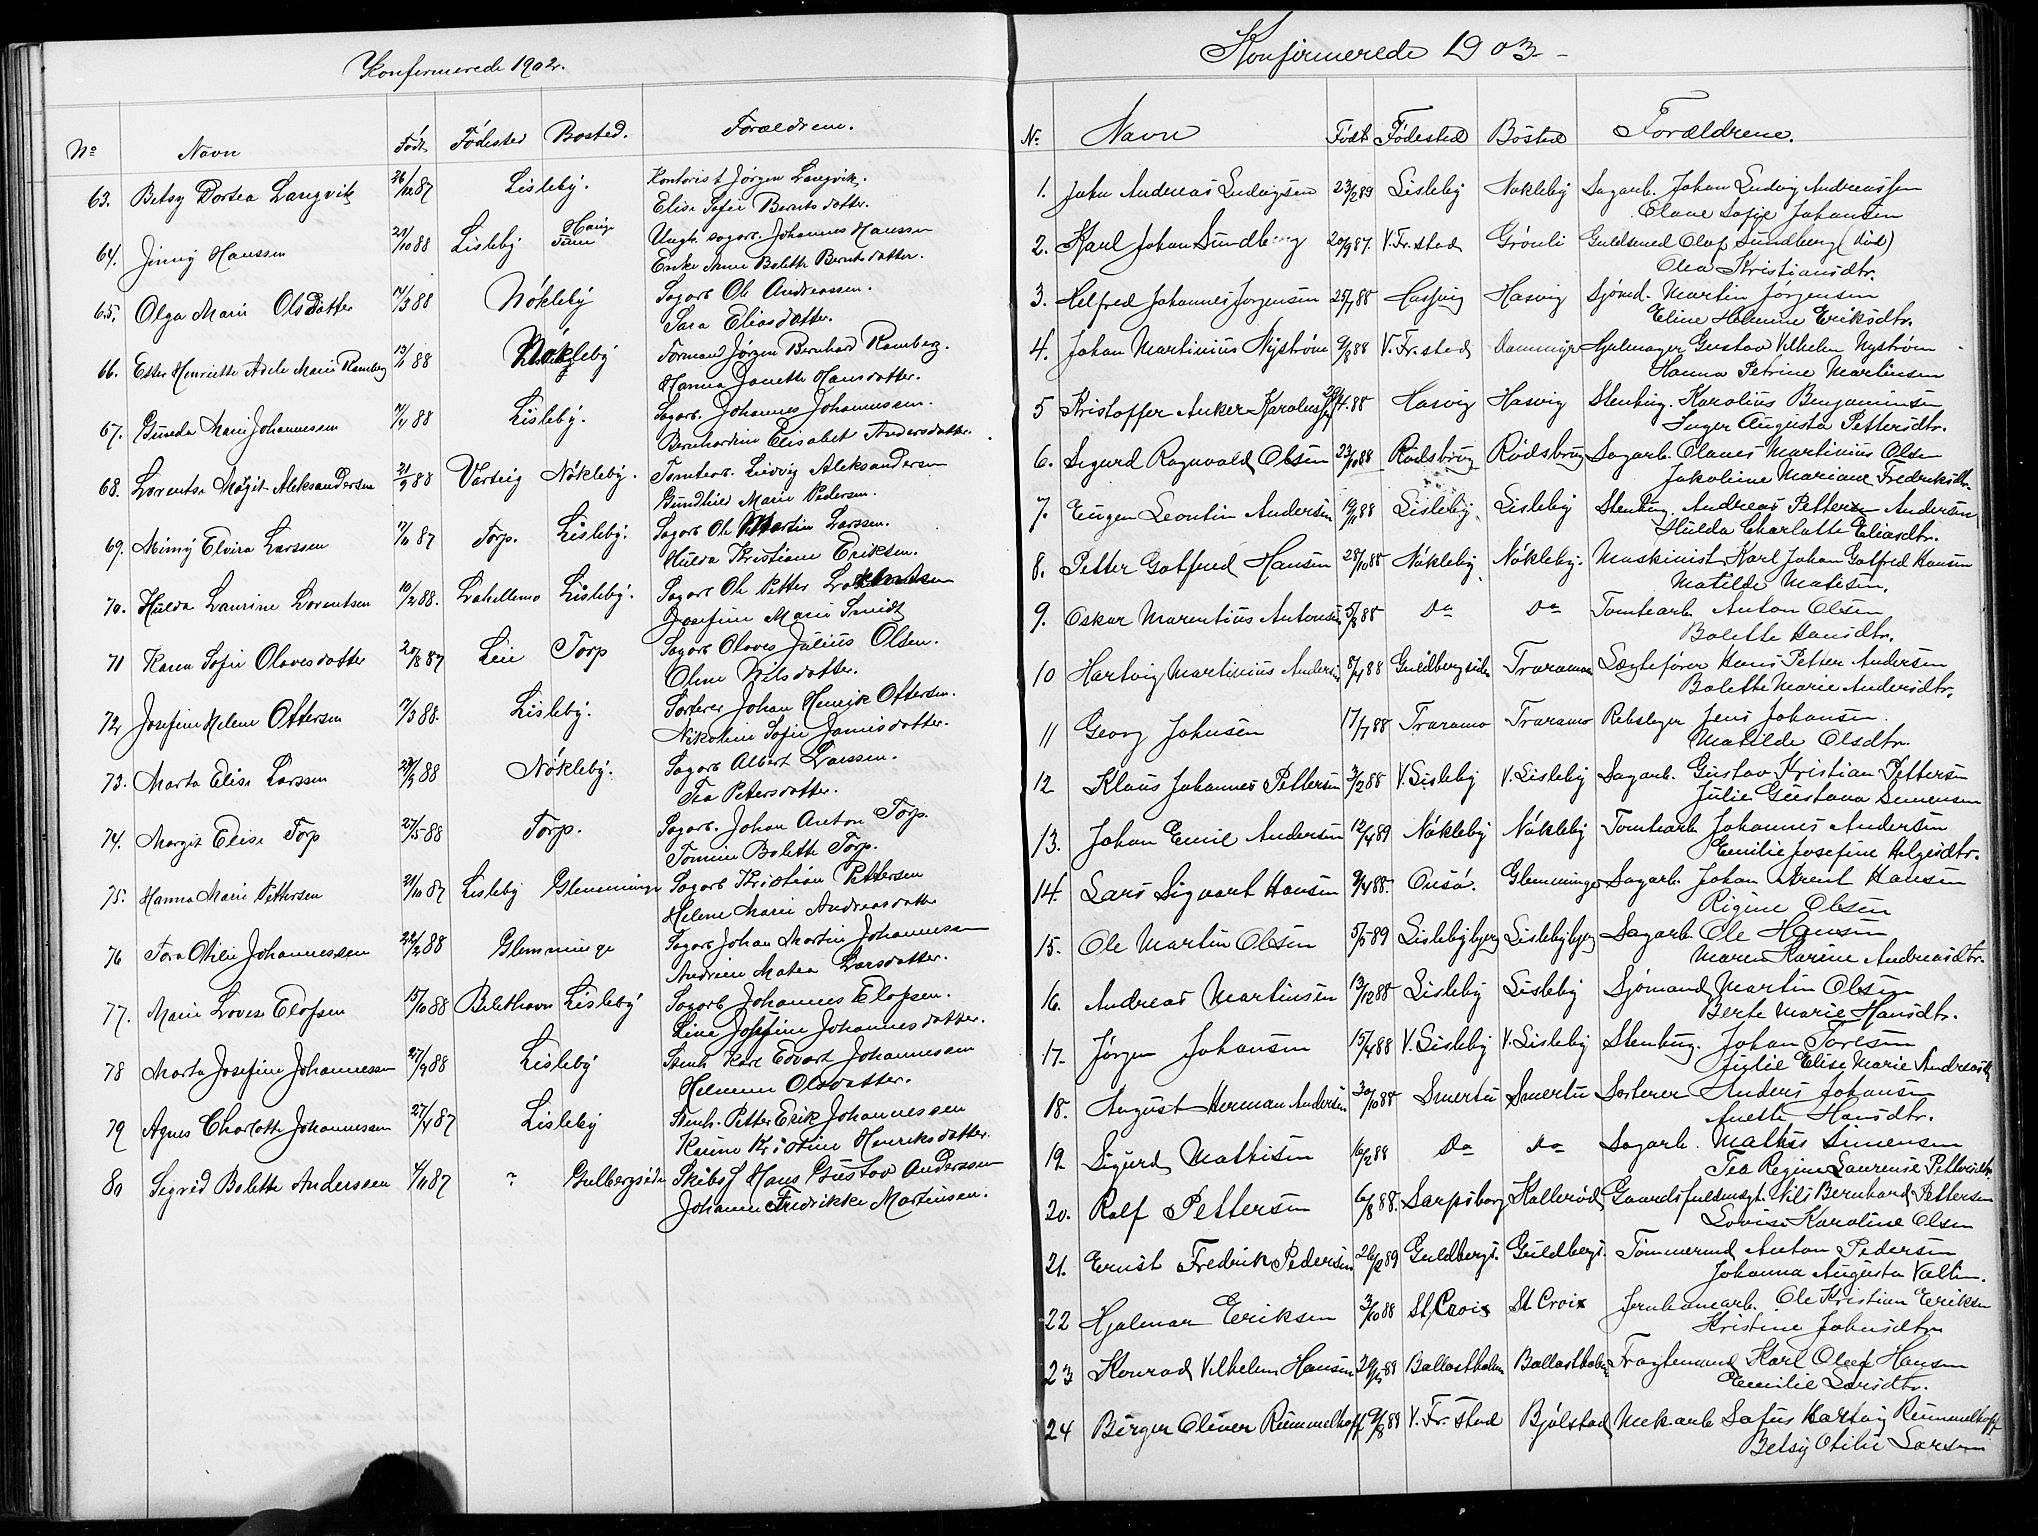 Konfirmerede 1902.
No Navn Født Fødested Bosted. Forældrene.
63. Betsy Dortea Langvik 26/12 87 Lisleby. Kontorist Jørgen Langvik.
Elise Sofie Berntsdatter.
64. Jenny Hanssen 29/10 88 Lisleby Ungk. sagarb. Johannes Hanssen
Enke Anne Bolette Berntsdatter.
65. Olga Marie Olsdatter 7/3 88 Nøkleby Sagarb Ole Andreassen.
Sara Eliasdatter.
66. Ester Henriette Adele Marie Ramberg 13/1 88 Nøkleby Formand Jørgen Bernhard Ramberg.
Hanna Janette Hansdatter.
67. Gunda Marie Johannessen 7/4 88 Lisleby. Sagarb. Johannes Johannessen.
Bernhardine Elisabet Andersdatter.
68. Lorentse Magit Aleksandersen 21/9 88 Varteig Nøkleby. Tomtearb. Ludvig Aleksandersen
Gundhild Marie Pedersen.
69. Mimmy Elvira Larssen 7/11 87 Torp. Lisleby. Sagarb Ole Martin Larssen.
Hulda Kristiane Eriksen.
70. Hulda Laurine Lorentsen 10/2 88. Lahellemo Lisleby. Sagarb Ole Petter Lorentsen
Josefine Marie Smidt
71 Karen Sofie Olavesdatter 20/8 87 Leie Torp Sagarb Olaves Julius Olsen.
Oline Nilsdatter.
72. Josefine Helene Ottersen 7/3 88. Lisleby. Sorterer Johan Henrik Ottersen.
Nikoline Sofie Jansdatter.
73. Marta Elise Larssen 28/2 88 Nøkleby. Sagarb Albert Larssen.
Tea Petersdatter.
74. Margit Elise Torp 27/5 88 Torp. Sagarb. Johan Anton Torp.
Tomine Bolette Torp.
75. Hanna Marie Pettersen 21/10 87 Lisleby Glemminge Sagarb Kristian Pettersen
Helene Marie Andreasdatter
76 Tora Otilie Johannessen 22/2 88 Glemminge Sagarb Johan Martin Johannessen
Andrine Matea Larsdatter.
77. Marie Lovise Elofsen 15/10 88 Lisleby Sagarb Johannes Elofsen.
Lina Josefine Johannesdatter.
78 Marta Josefine Johannessen 27/9 88 Lisleby Stenh. Karl Edvart Johannessen
Helmine Olsdatter.
79 Agnes Charlotte Johannessen 27/4 87 Lisleby Stenh. Petter Erik Johannessen
Karine Kristine Henriksdatter.
80 Sigrid Bolette Anderssen 4/11 87 ? Gulbergsiden Skibsf Hans Gustav Anderssen
Johanne Fredrikke Martinsen.
Konfirmerede 1903.
No Navn Født Fødested Bosted Forældrene.
1. John Andreas Ludvigsen 23/2 89 Lisleby Nøkleby Sagarb. Johan Ludvig Andreassen
Olave Sofie Johansen
2. Karl Johan Sundberg 20/9 87. V. Fr.stad Grønli Guldsmed Olof Sundberg (død)
Olea Kristiansdtr.
3. Helfred Johannes Jørgensen 25/7 88 Hasvig Hasvig Sjømd. Martin Jørgensen
Eline Helmine Eriksdtr.
4. Johan Martinius Nystrøm 9/8 88 V. Fr.stad Dammyr Hjulmager Gustav Vilhelm Nystrøm
Hanna Petrine Martinsen
5 Kristoffer Anker Karoliussen 29/4 88 Hasvig Hasvig Stenhug. Karolius Benjaminsen
Inger Augusta Pettersdtr.
6. Sigurd Ragnvald Olsen 23/10 88 Rødsbrug Rødsbrug Sagarb. Olaves Martinius Olsen
Jakobine Mariane Fredriksdtr.
7. Eugen Leontin Andersen 12/11 88 Lisleby Lisleby Stenhug. Andreas Petter Andersen
Hulda Charlotte Eliasdtr.
8. Petter Gotfred Hansen 28/10 88 Nøkleby Nøkleby. Maskinist Karl Johan Gotfred Hansen
Matilde Matisen.
9. Oskar Marentius Antonsen 5/8 88 Do Do Tomtearb Anton Olsen
Bolette Hansdtr.
10 Hartvig Martinius Andersen 8/4 88 Guldbergsiden Traramoen Lægtefører Hans Petter Andersen
Bolette Marie Andersdtr.
11 Georg Johnsen 17/7 88 Traramo Traramo Rebslager Jens Johansen.
Matilde Olsdtr.
12 Klaus Johannes Pettersen 3/2 88 V. Lisleby V. Lisleby Sagarb. Gustav Kristian Pettersen
Julie Gustava Simensen
13. Johan Emil Andersen 12/4 89 Nøkleby Nøkleby Tomtearb Johannes Andersen
Emilie Josefine Helgesdtr.
14. Lars Sigvart Hansen 9/4 88. Onsø. Glemminge Sagarb. Johan Arent Hansen
Rigine Olsen
15. Ole Martin Olsen 5/5 89 Lislebybjerg Lislebybjerg Sagarb. Ole Hansen
Maren Karine Andreasdtr.
16. Andreas Martinsen 13/12 88 Lisleby Lisleby Sjømand Martin Olsen
Berte Marie Hansdtr.
17. Jørgen Johansen 15/4 88 V. Lisleby V. Lisleby Stenhug. Johan Toresen
Julie Elise Marie Andreasdtr
18. August Herman Andersen 30/10 88 Smertu Smertu Sorterer Anders Johansen
Anette Hansdtr.
19. Sigurd Mathisen 16/2 88 Do Do Sagarb. Mathis Simensen
Tea Regine Laurense Pettersdtr.
20. Rolf Pettersen 6/8 88. Sarpsborg Kallerød Gaardsfuldmægt. Nils Bernhard Pettersen
Lovise Karoline Olsen
21. Ernst Fredrik Pedersen 26/2 89 Guldbergs. Guldbergs. Tømmermd Anton Pedersen
Johanna Augusta Vallin.
22 Hjalmar Eriksen 3/10 88 St. Croix St Croix Jernbanearb. Ole Kristian Eriksen
Kristine Johnsdtr
23 Konrad Vilhelm Hansen 29/1 89 Ballastholmen Ballastholmen Fragtemand Karl Oluf Hansen
Emilie Larsdtr.
24 Birger Oliver Rummelhoff 9/8 88 V. Fr.stad Bjølstad Mekarb Sofus Hartvig Rummelhoff
Betsy Otilie Larsen